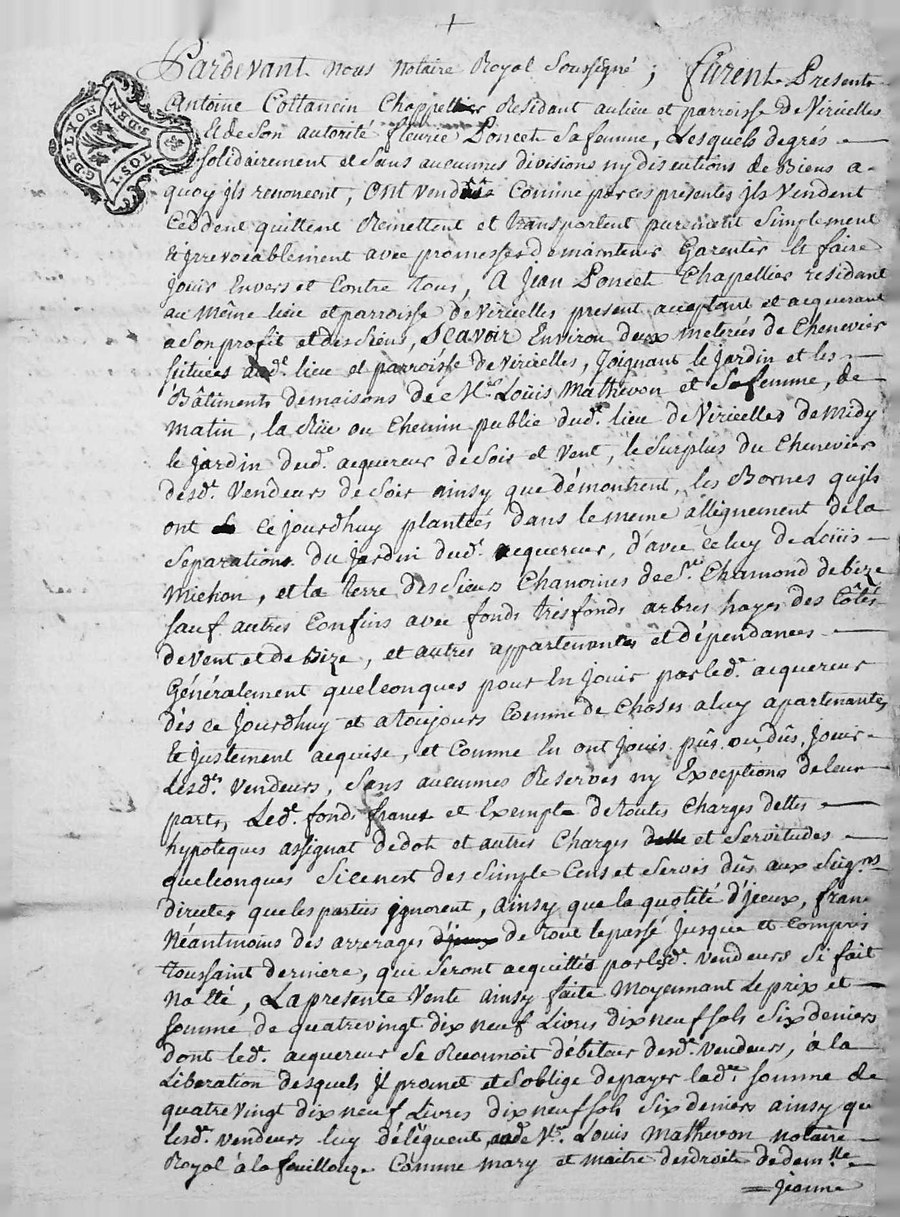 Pardevant nous notaire Royal Soussigné ; furent Presents
Antoine Cottancin Chappellier Résidant au lieu et parroisse de Viricelles
Et de Son autorité fleurie Poncet Sa femme, Lesquels de grés
G. DE LYON
DEN
TOSI
solidairement et Sans aucunnes divisions ny discutions de Biens a-
quoy jls renoncent, ONT vendus Comme par ces presentes jls Vendent
Ceddent quittent Remettent et transportent purement Simplement
& jrrevocablement avec promesses de maintenir Garentir Et faire
jouir Envers et Contre tous, A Jean Poncet Chapellier residant
au Même lieu et parroisse de Viricelles present acceptant et acquerant
a Son profit et des Siens, SCAVOIR Environ deux meterées de Chenevier
scituées aud.t lieu et parroisse de Viricelles, Joignant le jardin et les
Bâtiments de maisons de M.re Loüis Mathevon et Sa femme, de
matin, la Rüe ou Chemin public dud.t lieu de Viricelles de Midy
le jardin dud.t acquereur de Soir et Vent, le Surplus du Chenevier
desd.t Vendeurs de Soir ainsy que démontrent, les Bornes qu'jls
ont ce jourdhuy plantées dans le meme allignement de la
Separation du jardin dud.t acquereur, d'avec celuy de Loüis
Michon, et la terre des Sieurs Chanoines de S.t Chamond de bize
sauf autres Confins avec fonds trésfonds arbres hayes des Côtés
de Vent et de Bize, et autres appartenantes et dépendances
Généralement quelconques pour En Jouir par led.t acquereur
dés ce Jourdhuy et a toujours Comme de Choses a luy apartenantes
Et Justement acquise, et Comme En ont Jouis pûs ou dûs Jouir
Lesd.t Vendeurs, Sans aucunnes Reserves ny Exceptions de leur
part, Led.t fond franc et Exempte de toutes Charges dettes
hypoteques assignat de dot et autres Charges et Servitudes
quelconques Si ce nest des Simple Cens et Servis dûs aux Seig.rs
directes que les parties jgnorent, ainsy que la quotité d'jceux, franc
Néantmoins des arrerages de tout le passé Jusque et Compris
toussaint derniere, qui Seront acquittés par lesd.t Vendeurs Si fait
Na été, La presente Vente ainsy faite Moyennant Le prix et
somme de quatrevingt dix neuf Livres dix neuf sols Six deniers
dont led.t acquereur Se Reconnoit débiteur desd.t Vendeurs, à la
Liberation desquels jl promet et Soblige de payer lad.te Somme de
quatre vingt dix neuf Livres dix neuf sols Six deniers ainsy que
lesd.t Vendeurs luy délèguent, M.re Louis Mathevon notaire
Royal à la fouillouze Comme mary et maitre des droits de dem.lle
Jeanne